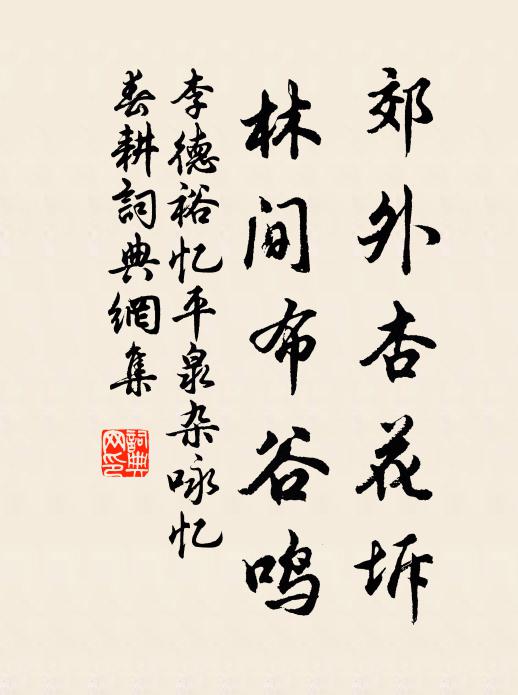 郊外杏花坼
林间布谷鸣
李德裕忆平泉杂咏忆
春耕詞典網集
詞典
网印